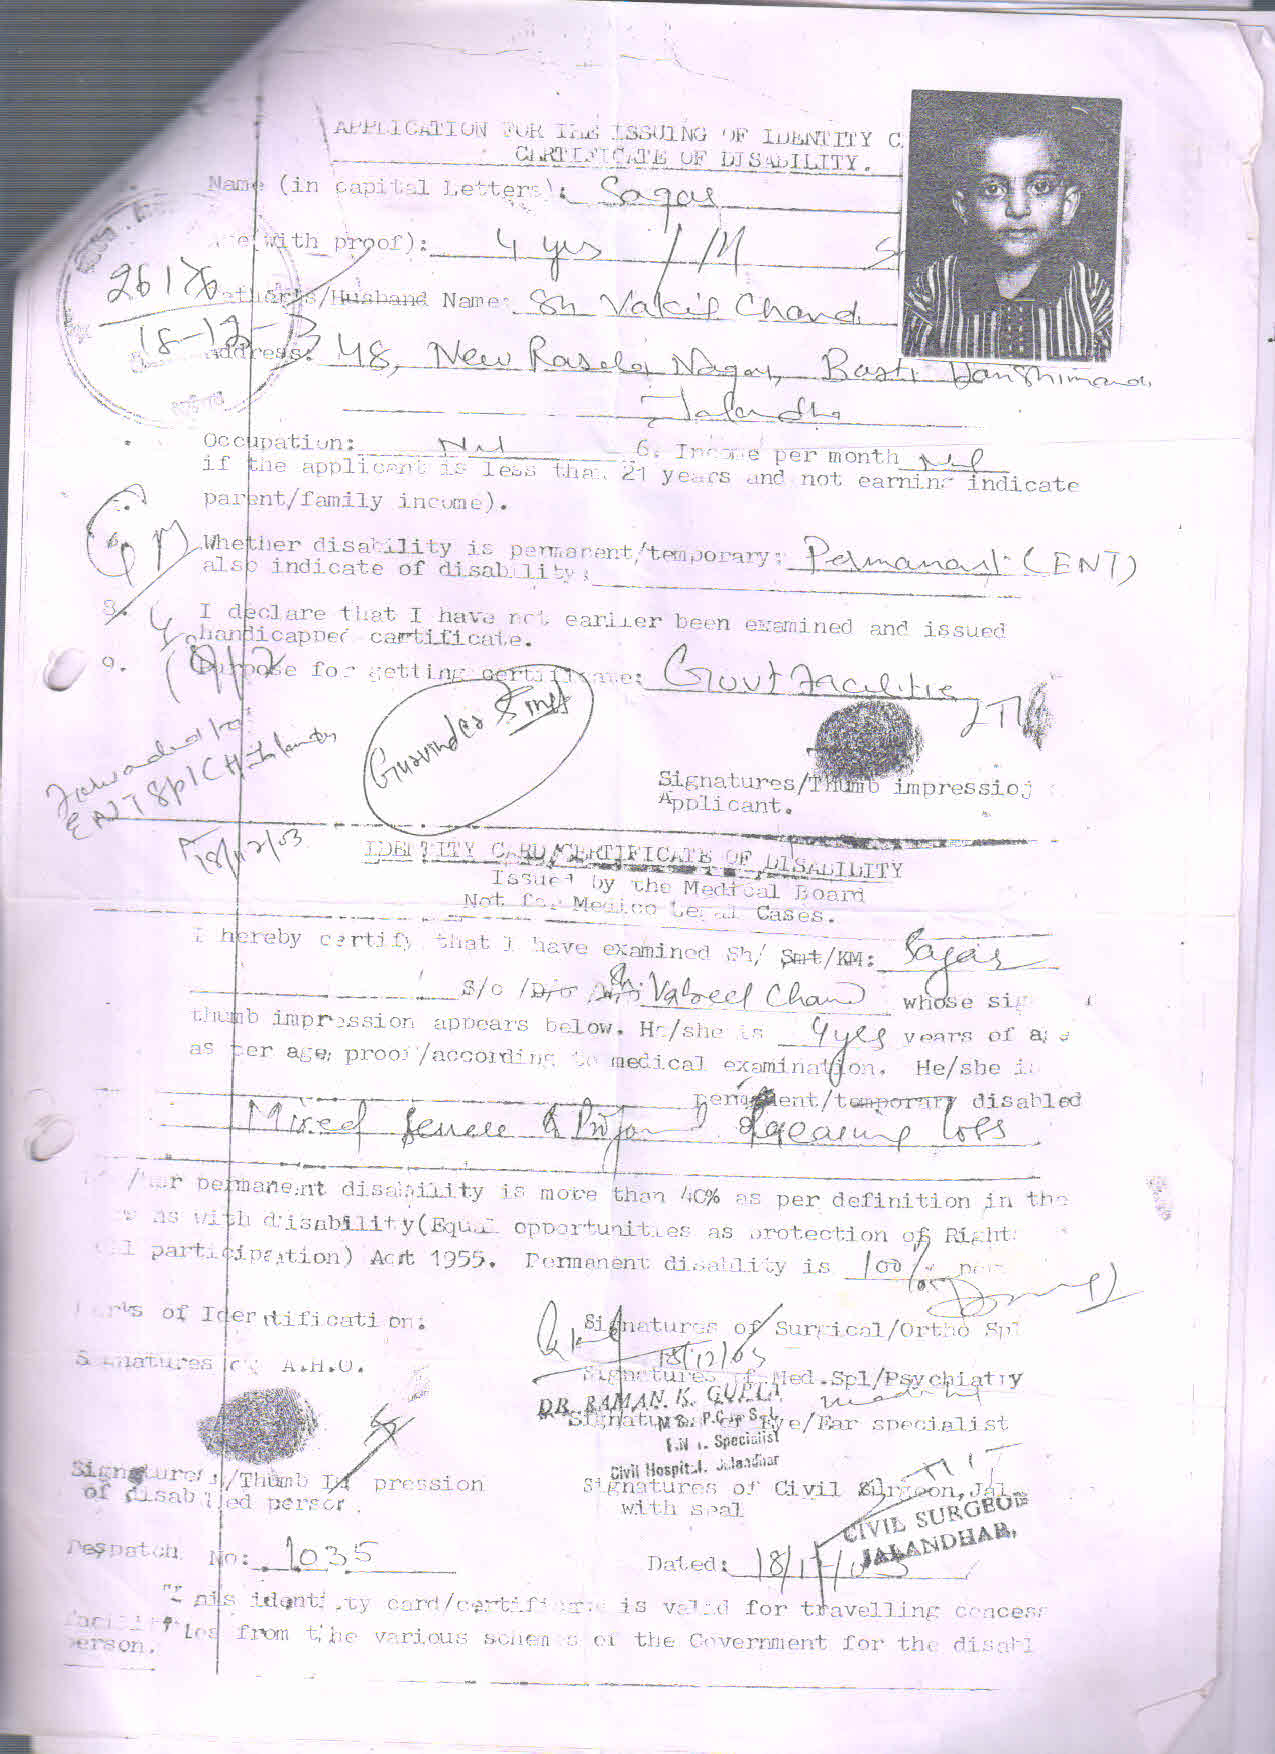 APPLICATION FOR THE ISSUING OF IDENTITY C
CERTIFICATE OF DISABILITY.
Name (in capital Letters): Sagar
with proof): 4 yrs / M
26170
18-12-3
/Husband Name: Sh Vakil Chand
Address: 48, New Rasela Nagar, Basti Danshimand,
Jalandha
Occupation: Nil 6. Income per month Nil
if the applicant is less than 21 years and not earning indicate
parent/family income).
Whether disability is permanent/temporary: Permanant (ENT)
also indicate of disability:
8. I declare that I have not earlier been examined and issued
handicapped certificate.
9. Purpose for getting certificate: Govt Facilitie
Gurvinder Singh
LTI
ENT Spl CH
18/12/03
Signatures/Thumb impressio
Applicant.
IDENTITY CARD/CERTIFICATE OF DISABILITY
Issued by the Medical Board
Not for Medico Legal Cases.
I hereby certify that I have examined Sh/ Smt/KM: Sagar
S/o /D/o /W/o Sh Vakeel Chand whose sig
thumb impression appears below. He/she is 4 yrs years of a e
as per age proof/according to medical examination. He/she i
permanent/temporary disabled
Mixed hearing loss
/her permanent disability is more than 40% as per definition in the
ns with disability(Equal opportunities as protection of Right
participation) Act 1955. Permanent disability is 100% per
of Identification:
Signatures of Surgical/Ortho Spl
18/12/03
Signatures of A.H.O.
Signatures of Med.Spl/Psychiatry
DR. RAMAN K. GUPTA
Signatures of Eye/Ear specialist
E.N.T. Specialist
Civil Hospital, Jalandhar
Signatures/Thumb Impression
of disabled person.
Signatures of Civil Surgeon, Jal.
with seal
CIVIL SURGEON
JALANDHAR.
Despatch No: 1035
Dated: 18/12/03
This identity card/certificate is valid for travelling concess
facilities from the various schemes of the Government for the disabl
person.